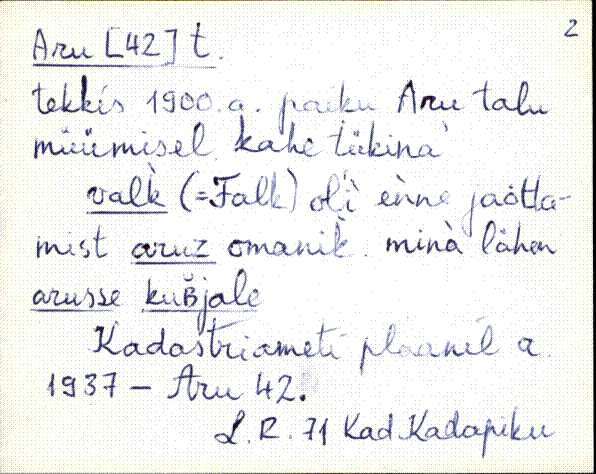 2
Aru [42] t.
tekkis 1900.a. paiku Aru talu
müümisel kahe tükina
valk̀ (=Falk) olì enne jaotta-
mist aruz omanik̀. minà lähen
arusse kuʙ̆jale
Kadastriameti plaanil a.
1937 – Aru 42.
L. R. 71 Kad Kadapiku